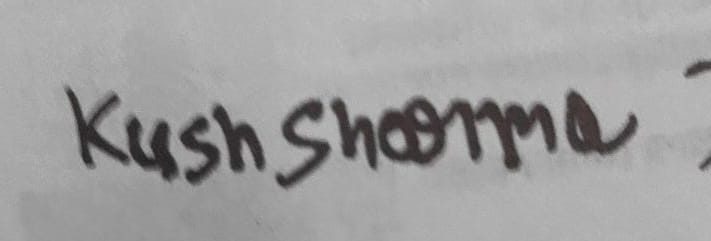 Kush Sharma